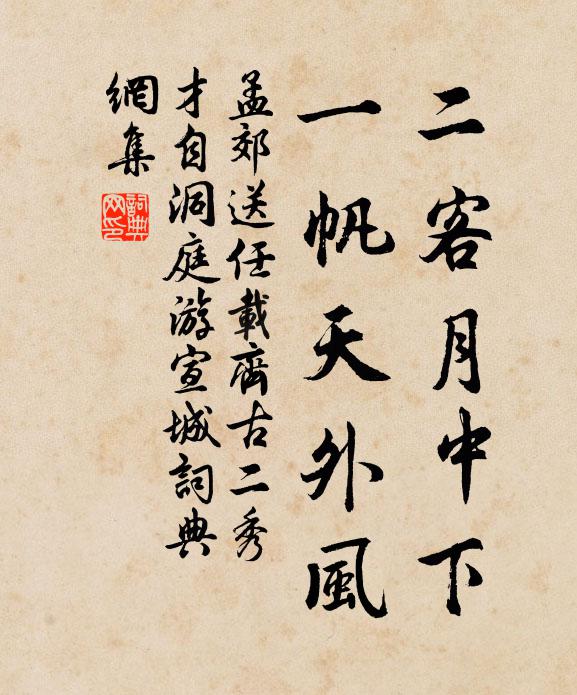 二客月中下
一帆天外風
孟郊送任載齊古二秀
才自洞庭游宣城詞典
網集
詞典
网印